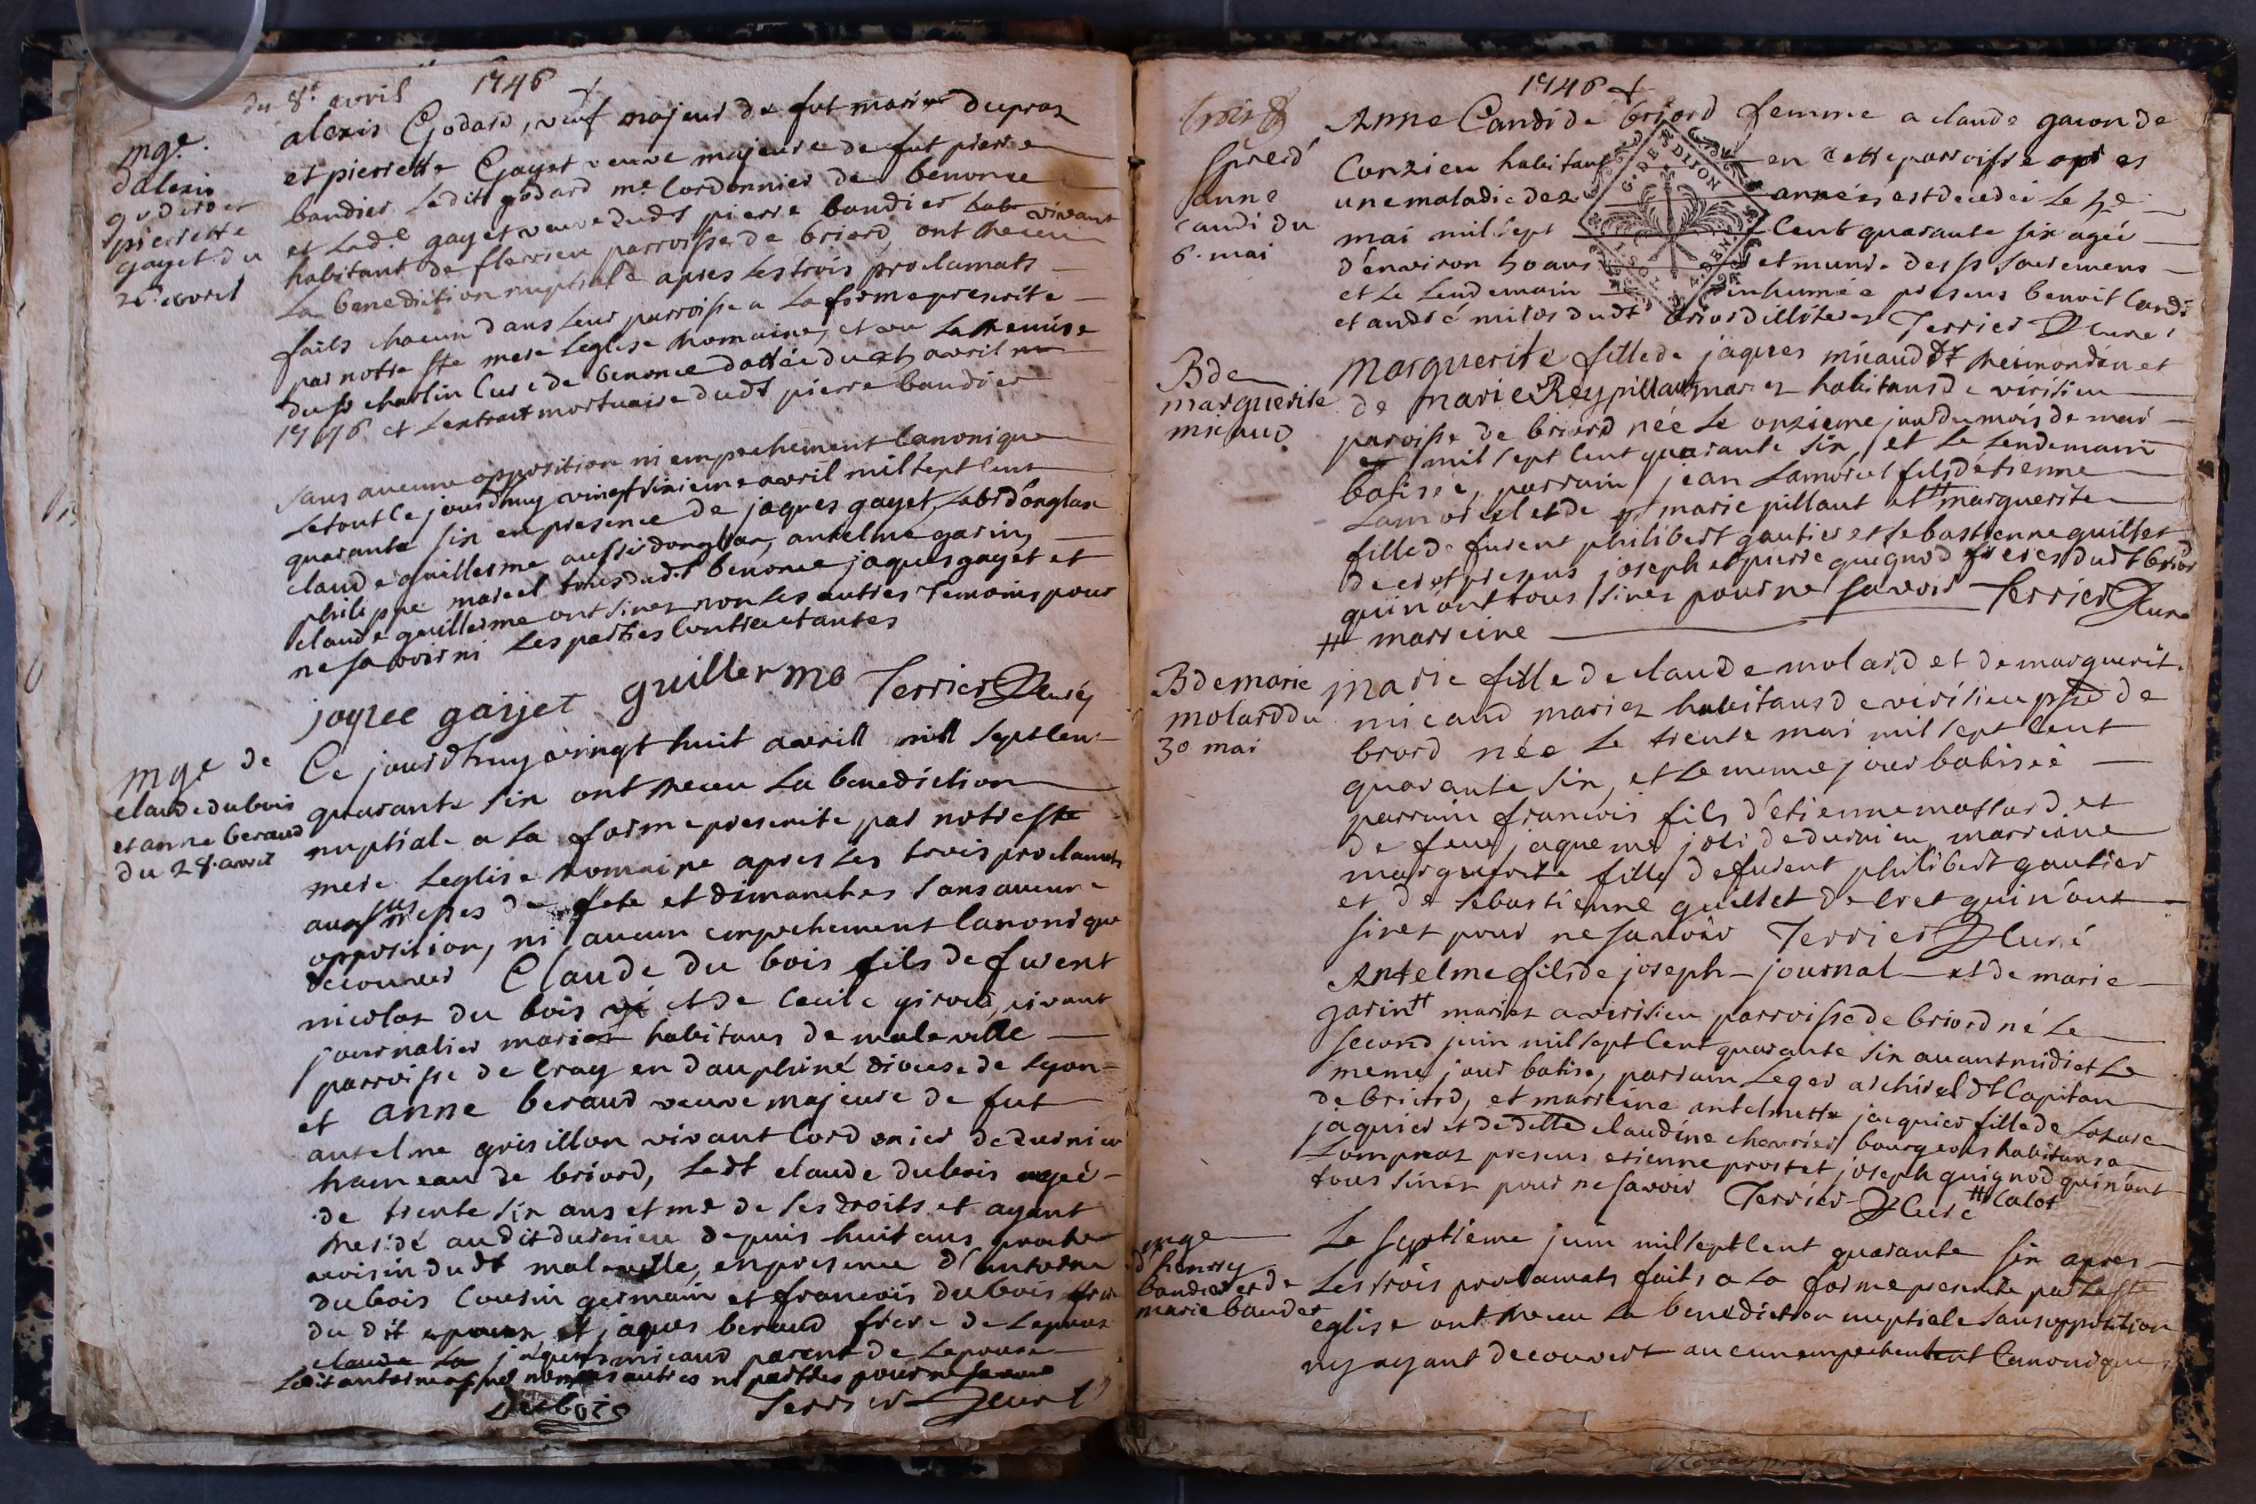 du 8e avril 1746
mge.
d'alexis
godard et
pierrette
gayet du
26. avril
alexis Godard, veuf majeur de fut marie dupraz
et pierrette Gayet veuve majeure de fut pierre
baudier ledit godard me Cordonnier de benonce
et lade gayet veuve dudt pierre baudier vivant
habitant de flerieu parroisse de briord, ont receu
la benediction nuptiale apres les trois proclamats
faits chacun dans leur parroisse a la forme prescrite
par notre ste mere leglise romaine, et vu la remise
du sr charlin Curé de benonce dattée du avril
1746 et lextrait mortuaire dudt pierre baudier
sans aucune opposition ni empechement Canonique
le tout ce jourdhuy vingt sixieme avril mil sept cent
quarante six en presence de jaques gayet,
claude guillerme aussi anthelme garin,
philippe marcel tous dudt benonce jaques gayet et
claude guillerme ont sinez non les autres temoins pour
ne savoir ni les parties Contractantes
jaque gayet guillerme Terrier Curé
mge de
claude dubois
et anne beraud
du 28. avril
Ce jourdhuy vingt huit avrill mill sept cent
quarante six ont receu la benediction
nuptiale a la forme prescrite par notre ste
mere leglise romaine apres les trois proclamats
aux messes de fete et dimanches sans aucune
opposition, ni aucun empechement Canonique
decouver Claude du bois fils de fuient
nicolas du bois et de Cecile giroud, vivant
journalier mariez habitans de maleville
parroisse de Cray en dauphiné diocese de lyon
et anne beraud veuve majeure de fut
antelme grisillon vivant Cordonier de durnieu
hameau de briord, ledt claude dubois agée
de trente six ans et me de ses droits et ayant
residé audit durnieu depuis huit ans proche
voisin dudt maleville, en presence d'antoine
dubois Cousin germain et francois dubois frere
du dit epoux et jaques beraud frere de lepouse
jaques micaud parent de lepouse
ledit antoine siné non les autres ni parties pour ne savoir
dubois Terrier Curé
1746
Anne
Candi du
6. mai
Anne Candide briord femme a claude gacon de
Conzieu habitant en cette parroisse apres
une maladie de 2 années est decedée le 5e
mai mil sept Cent quarante six agée
d'environ 50 ans et munie des sts sacremens
et le lendemain inhumée presens benoit Candi
et andré milos dudt briord illiterez Terrier Curé
G. DE DIJON
B de
marguerite
micaud
marguerite fille de jaques micaud dt reimondin et
de marie Rey pillaut mariez habitans de virisieu
paroisse de briord née le onzieme jour du mois de mai
mil sept Cent quarante six, et le lendemain
batisée, parrain jean Lamorel fils d'etienne
Lamorel et de marie pillaut et # marguerite
fille de fuient philibert gautier et sebastienne guillet
de cret presens joseph et pierre quignod freres dudt briord
qui n'ont tous sinez pour ne savoir Terrier Curé
# marreine
B de marie
molard du
30 mai
marie fille de claude molard et de marguerite
micaud mariez habitans de virisieu psse de
briord née le trente mai mil sept Cent
quarante six, et le meme jour batisée
parrain francois fils d'etienne massard et
de feue jaqueme joli de durnieu, marreine
marguerite fille de fuient philibert gautier
et de sebastienne guillet de Cret qui n'ont
sinez pour ne savoir Terrier Curé
Antelme fils de joseph journal et de marie
garin # mariez a virisieu parroisse de briord né le
second juin mil sept Cent quarante six avant midi et le
meme jour batisé, parrain Leger archirel dt Capitan
de briord, et marreine antelmette jacquier fille de
jaquier et de dlle claudine chevrier bourgeois habitans a
Lompnaz presens etienne prost et joseph quignod qui n'ont
tous sinez pour ne savoir Terrier Curé # Calot
mge
d'henry
baudier et de
marie baudet
Le septieme juin mil sept Cent quarante six apres
les trois proclamats faits a la forme prescrite par la ste
eglise ont receu la benediction nuptiale sans opposition
ny ayant decouvert aucun empechement Canonique